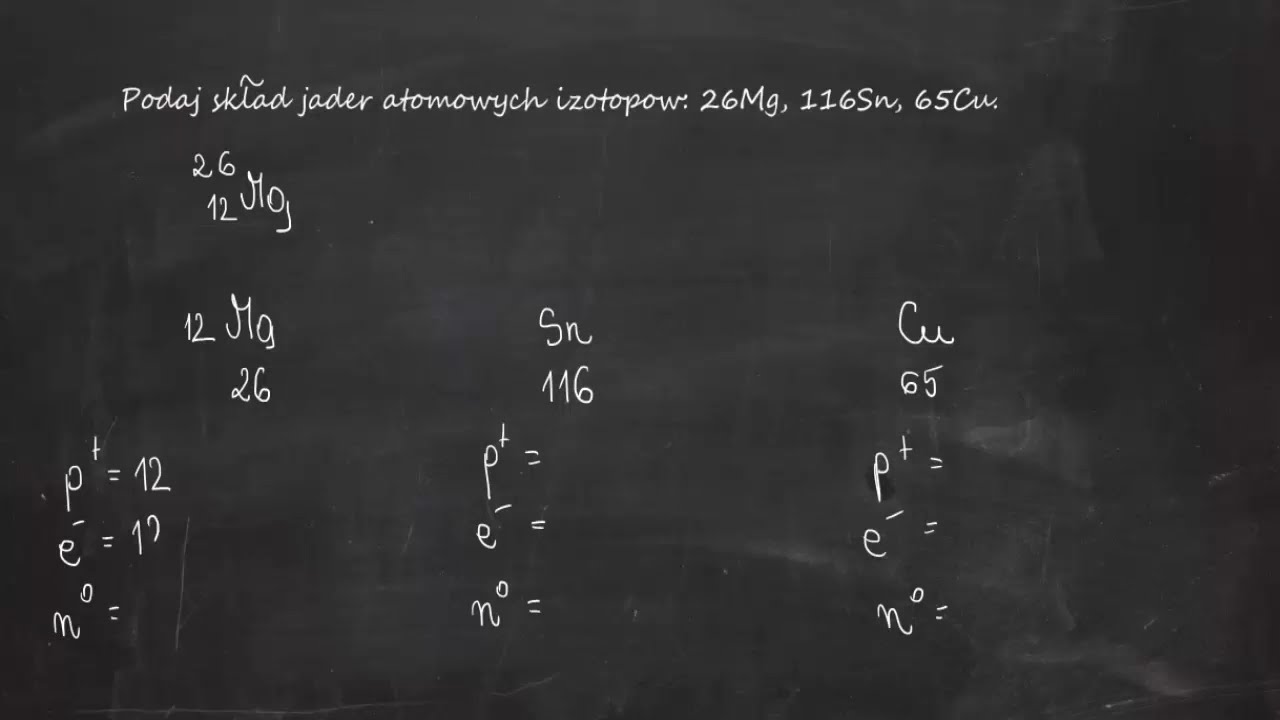 Podaj skład jader atomowych izotopow: 26Mg, 116Sn, 65Cu.
26
12 Mg
12 Mg Sn Cu
26 116 65
p+ = 12 p+ = p+ =
e- = 12 e- = e- =
n0 = n0 = n0 =